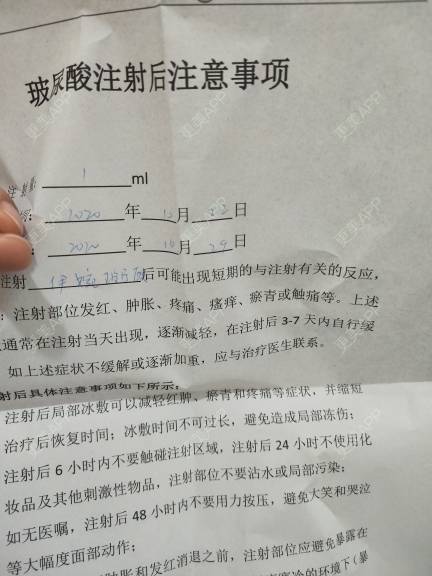 玻尿酸注射后注意事项
注射量: 1 ml
间: 2020 年 10 月 22 日
: 2020 年 10 月 29 日
注射 伊婉 玻尿酸 后可能出现短期的与注射有关的反应,
: 注射部位发红、肿胀、疼痛、瘙痒、瘀青或触痛等。上述
通常在注射当天出现,逐渐减轻,在注射后 3-7 天内自行缓
如上述症状不缓解或逐渐加重,应与治疗医生联系。
射后具体注意事项如下所示:
注射后局部冰敷可以减轻红肿、瘀青和疼痛等症状,并缩短
治疗后恢复时间;冰敷时间不可过长,避免造成局部冻伤;
注射后 6 小时内不要触碰注射区域,注射后 24 小时不使用化
妆品及其他刺激性物品,注射部位不要沾水或局部污染;
如无医嘱,注射后 48 小时内不要用力按压,避免大笑和哭泣
等大幅度面部动作;
肿胀和发红消退之前,注射部位应避免暴露在
寒冷的环境下(暴
更美APP